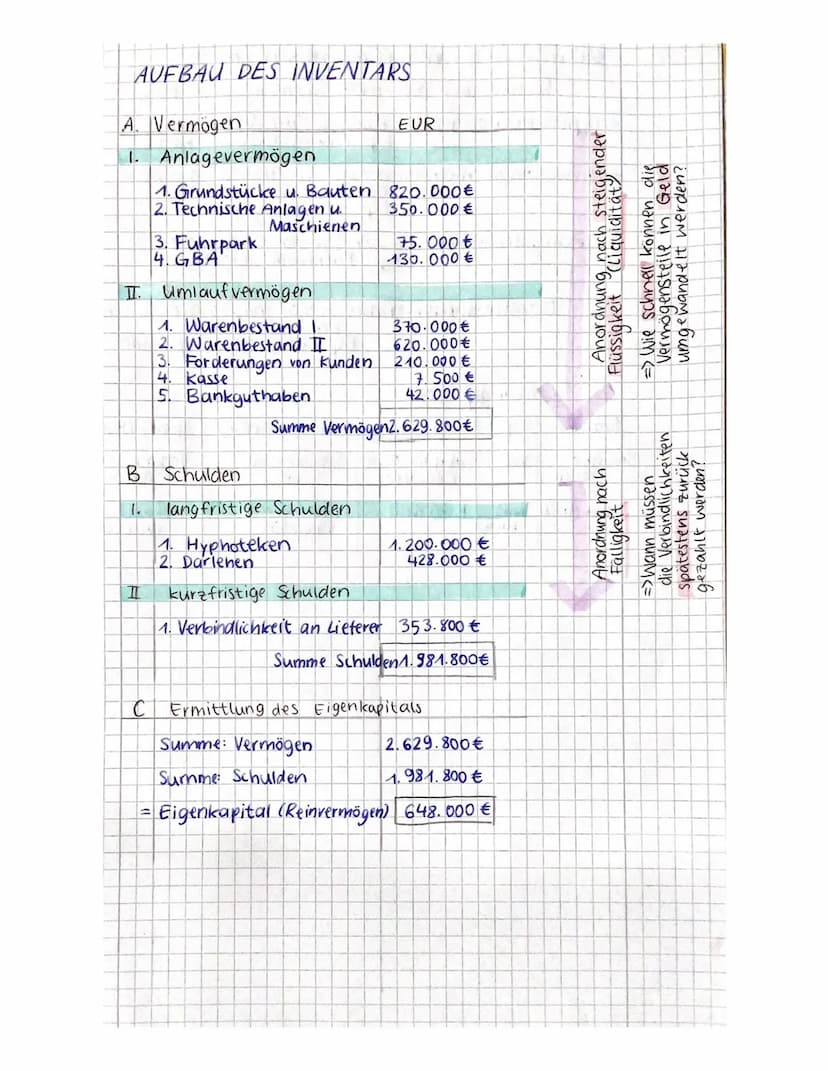 AUFBAU DES INVENTARS
A. Vermögen EUR
I. Anlagevermögen
1. Grundstücke u. Bauten 820.000€
2. Technische Anlagen u. 350.000 €
Maschienen
3. Fuhrpark 75.000 €
4. GBA 130.000 €
II. Umlaufvermögen
1. Warenbestand I 370.000€
2. Warenbestand II 620.000€
3. Forderungen von Kunden 210.000 €
4. Kasse 7.500 €
5. Bankguthaben 42.000 €
Summe Vermögen 2.629.800€
B Schulden
I. langfristige Schulden
1. Hyphoteken 1.200.000 €
2. Darlehen 428.000 €
II kurzfristige Schulden
1. Verbindlichkeit an Lieferer 353.800 €
Summe Schulden 1.981.800€
C Ermittlung des Eigenkapitals
Summe: Vermögen 2.629.800€
Summe: Schulden 1.981.800 €
= Eigenkapital (Reinvermögen) 648.000 €
Anordnung nach steigender
Flüssigkeit (Liquidität)
=> Wie schnell können die
Vermögensteile in Geld
umgewandelt werden?
Anordnung nach
Fälligkeit
=> Wann müssen
die Verbindlichkeiten
spätestens zurück
gezahlt werden?